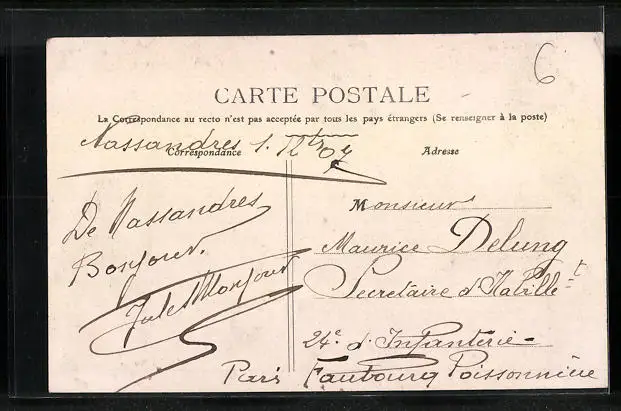 6
CARTE POSTALE
La Correspondance au recto n'est pas acceptée par tous les pays étrangers (Se renseigner à la poste)
Nassandres 1. 07
Correspondance
Adresse
De Nassandres
Bonjour.
Jules Monjour
Monsieur
Maurice Delung
Secretaire d'Habille^t
24e d'Infanterie
Paris Faubourg Poissonnière